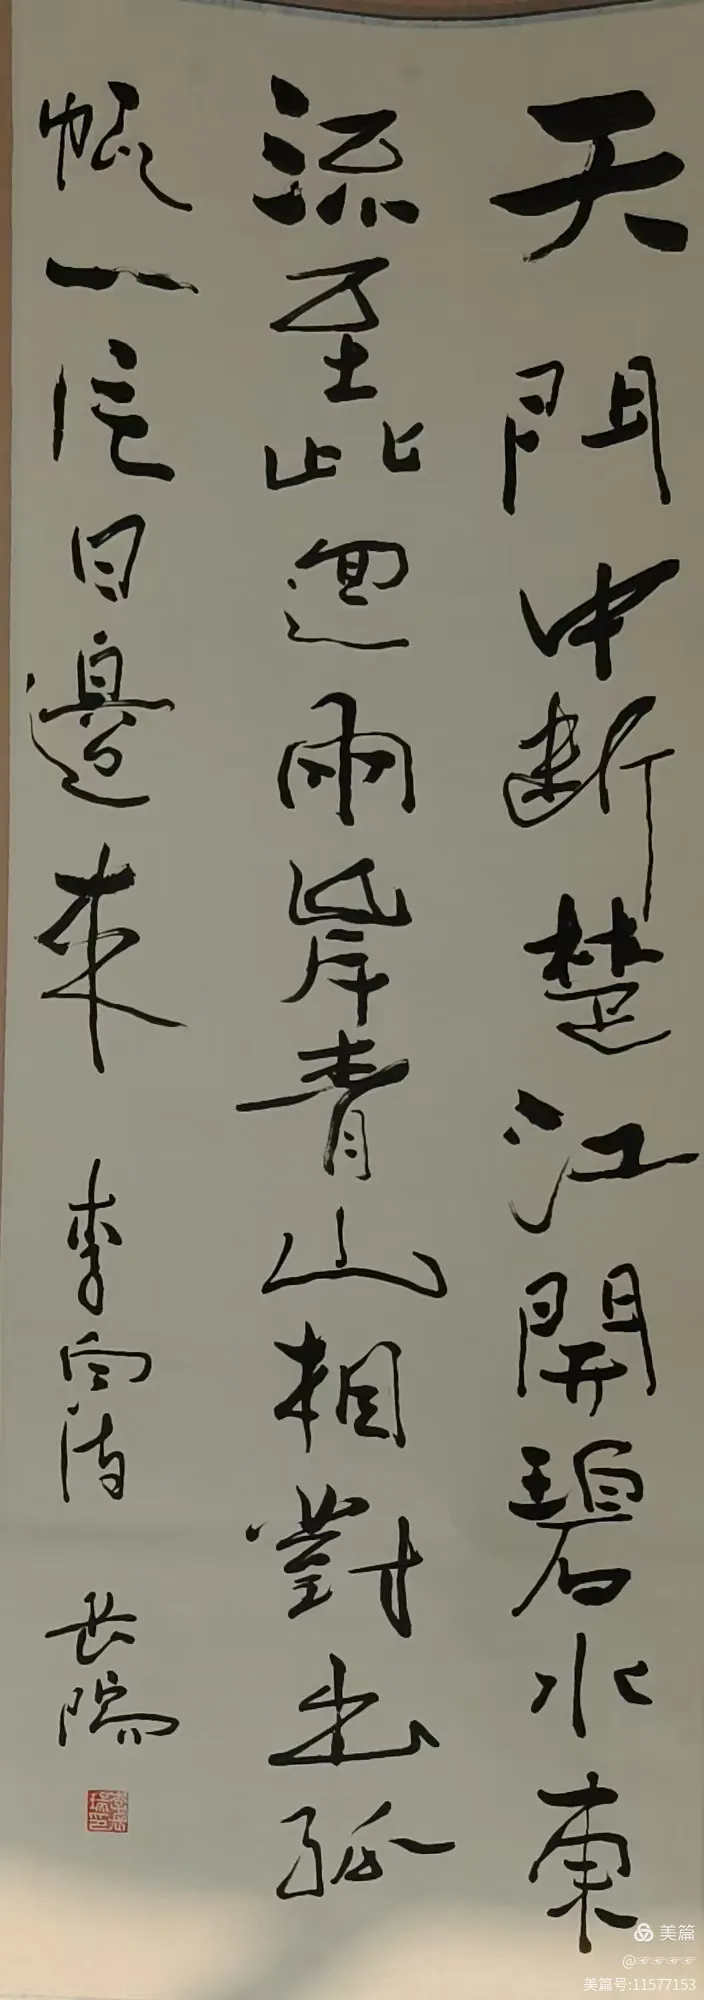 天門中断楚江開碧水東
流至此迴兩岸青山相對出孤
帆一片日邊來 李白詩
美篇
美篇号:11577153